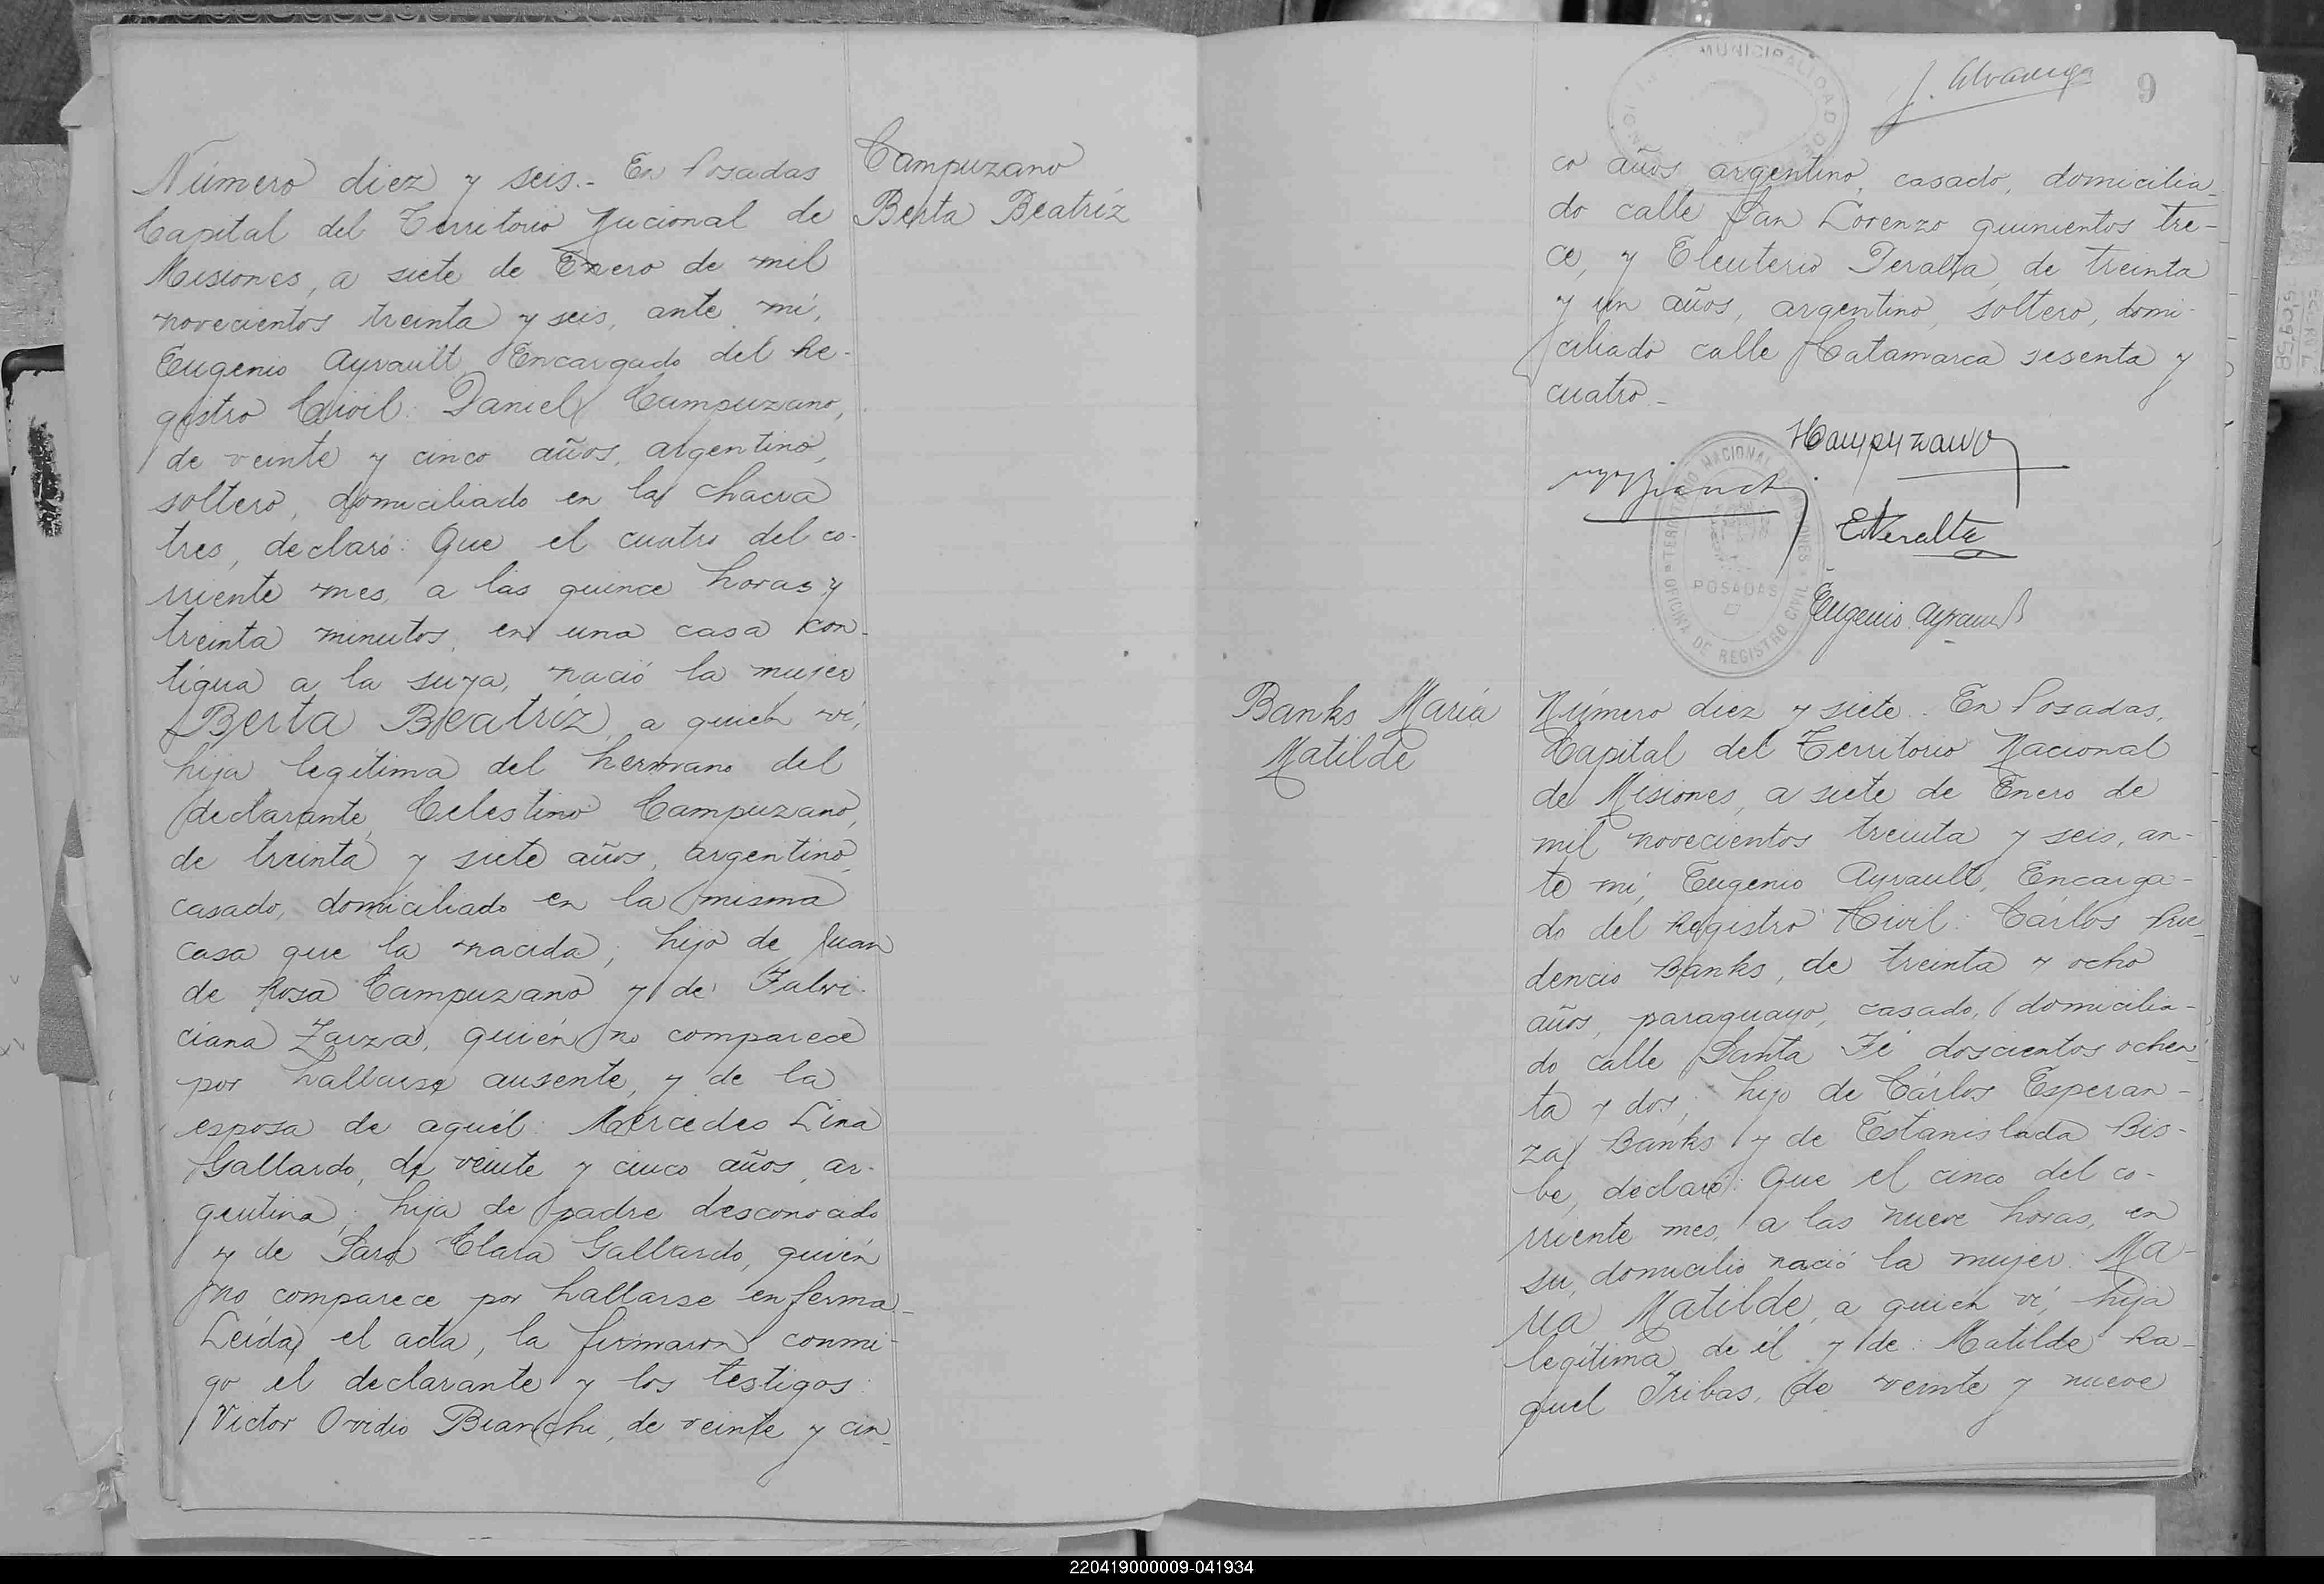 Número diez y seis.- En Posadas
Capital del Territorio Nacional de
Misiones, a siete de Enero de mil
novecientos treinta y seis, ante mí,
Eugenio Ayrault, Encargado del Re-
gistro Civil: Daniel Campuzano,
de veinte y cinco años, argentino,
soltero, domiciliado en la chacra
tres, declaró: Que el cuatro del co-
rriente mes, a las quince horas y
treinta minutos, en una casa con-
tigua a la suya, nació la mujer
Berta Beatríz, a quien ví,
hija legítima del hermano del
declarante, Celestino Campuzano,
de treinta y siete años, argentino,
casado, domiciliado en la misma
casa que la nacida; hijo de Juan
de Rosa Campuzano y de Fulvi-
ciana Zarza, quién no comparece
por hallarse ausente, y de la
esposa de aquél: Mercedes Lina
Gallardo, de veinte y cinco años, ar-
gentina; hija de padre desconocido
y de Sara Clara Gallardo, quién
no comparece por hallarse enferma.-
Leída el acta, la firmaron conmi-
go el declarante y los testigos:
Victor Ovidio Bianchi, de veinte y cin-
Campuzano
Berta Beatríz
MUNICIPALIDAD DE
J. Alvarenga
9
co años argentino, casado, domicilia-
do calle San Lorenzo quinientos tre-
ce, y Eleuterio Peralta, de treinta
y un años, argentino, soltero, domi-
ciliado calle Catamarca sesenta y
cuatro.-
Campuzano
Bianchi
EPeralta
Eugenio Ayrault
TERRITORIO NACIONAL DE MISIONES
POSADAS
OFICINA DE REGISTRO CIVIL
Banks María
Matilde
Número diez y siete.- En Posadas,
Capital del Territorio Nacional
de Misiones, a siete de Enero de
mil novecientos treinta y seis, an-
te mí, Eugenio Ayrault, Encarga-
do del Registro Civil: Cárlos Pru-
dencio Banks, de treinta y ocho
años, paraguayo, casado, domicilia-
do calle Santa Fé doscientos ochen-
ta y dos; hijo de Cárlos Esperan-
za Banks y de Estanislada Bis-
be, declaró: Que el cinco del co-
rriente mes, a las nueve horas, en
su domicilio nació la mujer: Ma-
ría Matilde, a quien ví, hija
legítima de él y de: Matilde Ra-
quel Tribas, de veinte y nueve
220419000009-041934